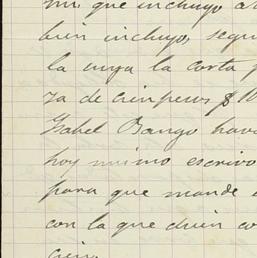 que incluyo a
bien incluyo, segu
la suya la carta
za de cien pesos $ 10
Isabel Bango hava
hoy mismo escrivo
para que mande
con la que dicen co